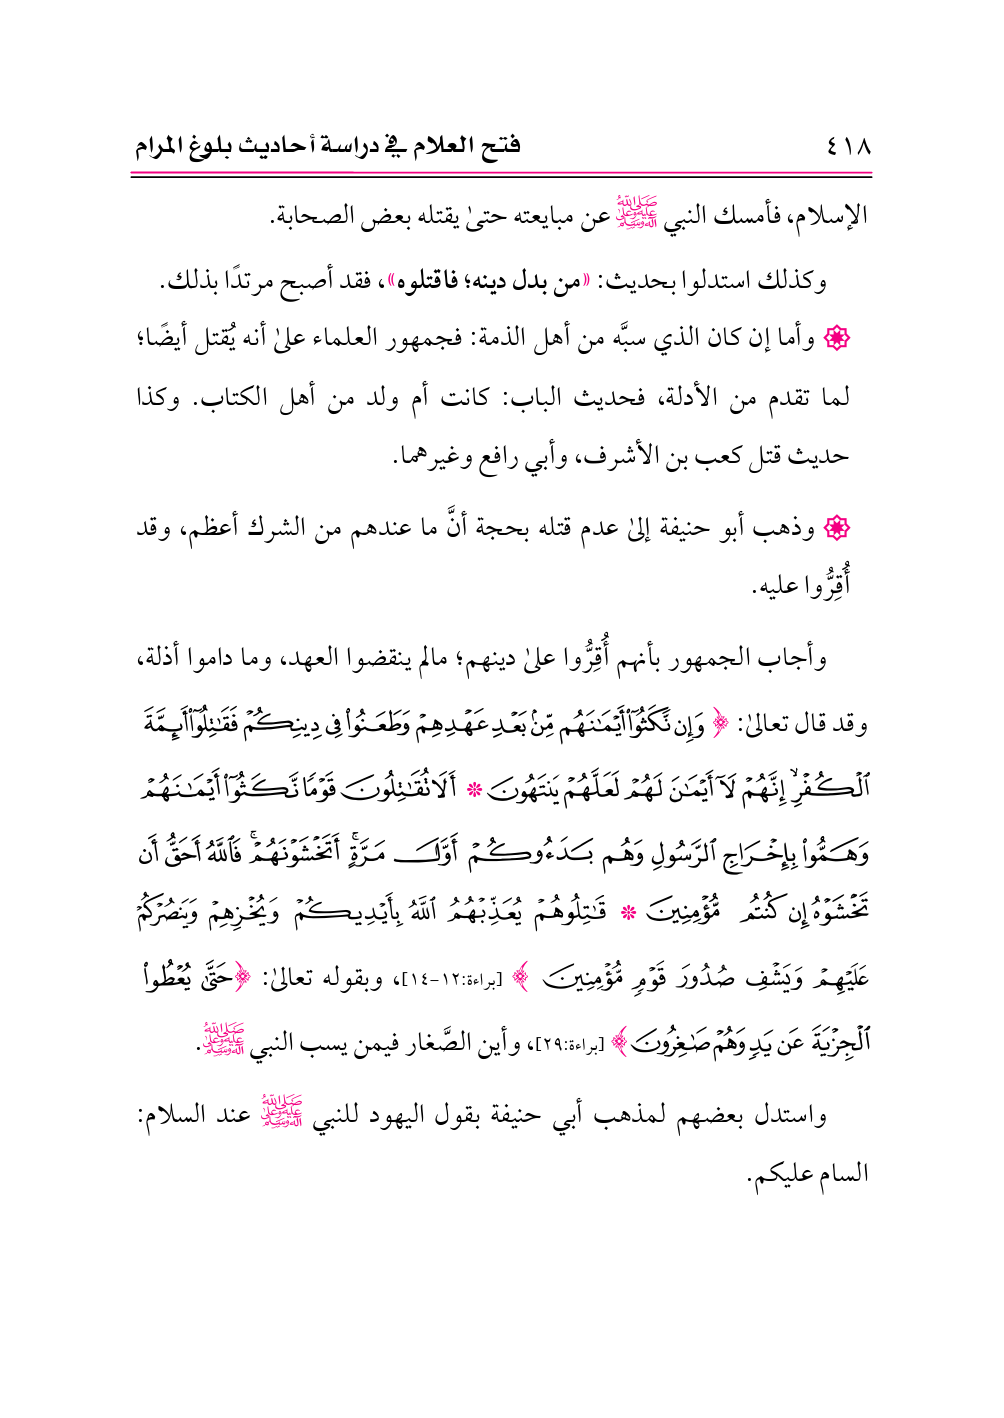 ٤١٨
فتح العلام في دراسة أحاديث بلوغ المرام
الإسلام، فأمسك النبي ﷺ عن مبايعته حتىٰ يقتله بعض الصحابة.
وكذلك استدلوا بحديث: «من بدل دينه؛ فاقتلوه»، فقد أصبح مرتدًا بذلك.
وأما إن كان الذي سبَّه من أهل الذمة: فجمهور العلماء علىٰ أنه يُقتل أيضًا؛
لما تقدم من الأدلة، فحديث الباب: كانت أم ولد من أهل الكتاب. وكذا
حديث قتل كعب بن الأشرف، وأبي رافع وغيرهما.
وذهب أبو حنيفة إلىٰ عدم قتله بحجة أنَّ ما عندهم من الشرك أعظم، وقد
أُقِرُّوا عليه.
وأجاب الجمهور بأنهم أُقِرُّوا علىٰ دينهم؛ مالم ينقضوا العهد، وما داموا أذلة،
وقد قال تعالىٰ: ﴿ وَإِن نَّكَثُوٓا۟ أَيْمَـٰنَهُم مِّنۢ بَعْدِ عَهْدِهِمْ وَطَعَنُوا۟ فِى دِينِكُمْ فَقَـٰتِلُوٓا۟ أَئِمَّةَ
ٱلْكُفْرِ ۙ إِنَّهُمْ لَآ أَيْمَـٰنَ لَهُمْ لَعَلَّهُمْ يَنتَهُونَ * أَلَا تُقَـٰتِلُونَ قَوْمًا نَّكَثُوٓا۟ أَيْمَـٰنَهُمْ
وَهَمُّوا۟ بِإِخْرَاجِ ٱلرَّسُولِ وَهُم بَدَءُوكُمْ أَوَّلَ مَرَّةٍ ۚ أَتَخْشَوْنَهُمْ ۚ فَٱللَّهُ أَحَقُّ أَن
تَخْشَوْهُ إِن كُنتُم مُّؤْمِنِينَ * قَـٰتِلُوهُمْ يُعَذِّبْهُمُ ٱللَّهُ بِأَيْدِيكُمْ وَيُخْزِهِمْ وَيَنصُرْكُمْ
عَلَيْهِمْ وَيَشْفِ صُدُورَ قَوْمٍ مُّؤْمِنِينَ ﴾ [براءة:١٢-١٤]، وبقوله تعالىٰ: ﴿حَتَّىٰ يُعْطُوا۟
ٱلْجِزْيَةَ عَن يَدٍ وَهُمْ صَـٰغِرُونَ ﴾ [براءة:٢٩]، وأين الصَّغار فيمن يسب النبي ﷺ.
واستدل بعضهم لمذهب أبي حنيفة بقول اليهود للنبي ﷺ عند السلام:
السام عليكم.